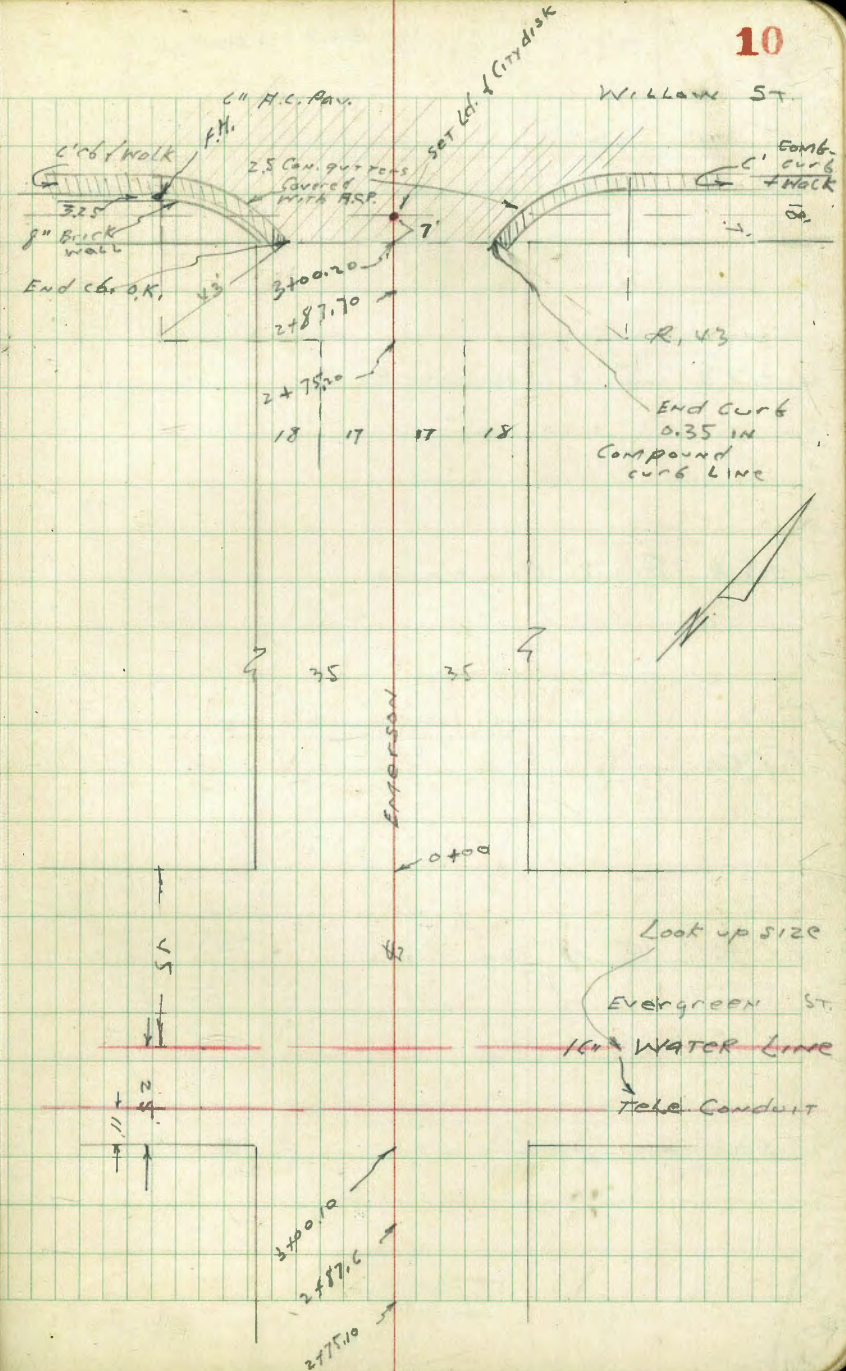 10
WILLOW ST.
6" A.C. Pav.
SET Ld. & CITY disk
F.H.
6' cb & Walk
2.5 Con. gutters
covered
WITH ASP.
6' COMB-
curb
+ WALK
3.25
8" Brick
WALL
7'
End cb. O.K.
43'
3+00.20
2+87.70
2+75.20
R, 43
End Curb
0.35 IN
Compound
curb LINE
18 17 17 18
N
35 35
EMERSON
0+00
45
Look up SIZE
Evergreen ST.
16" WATER LINE
25
Tele Conduit
11
3+00.10
2+87.6
2+75.10